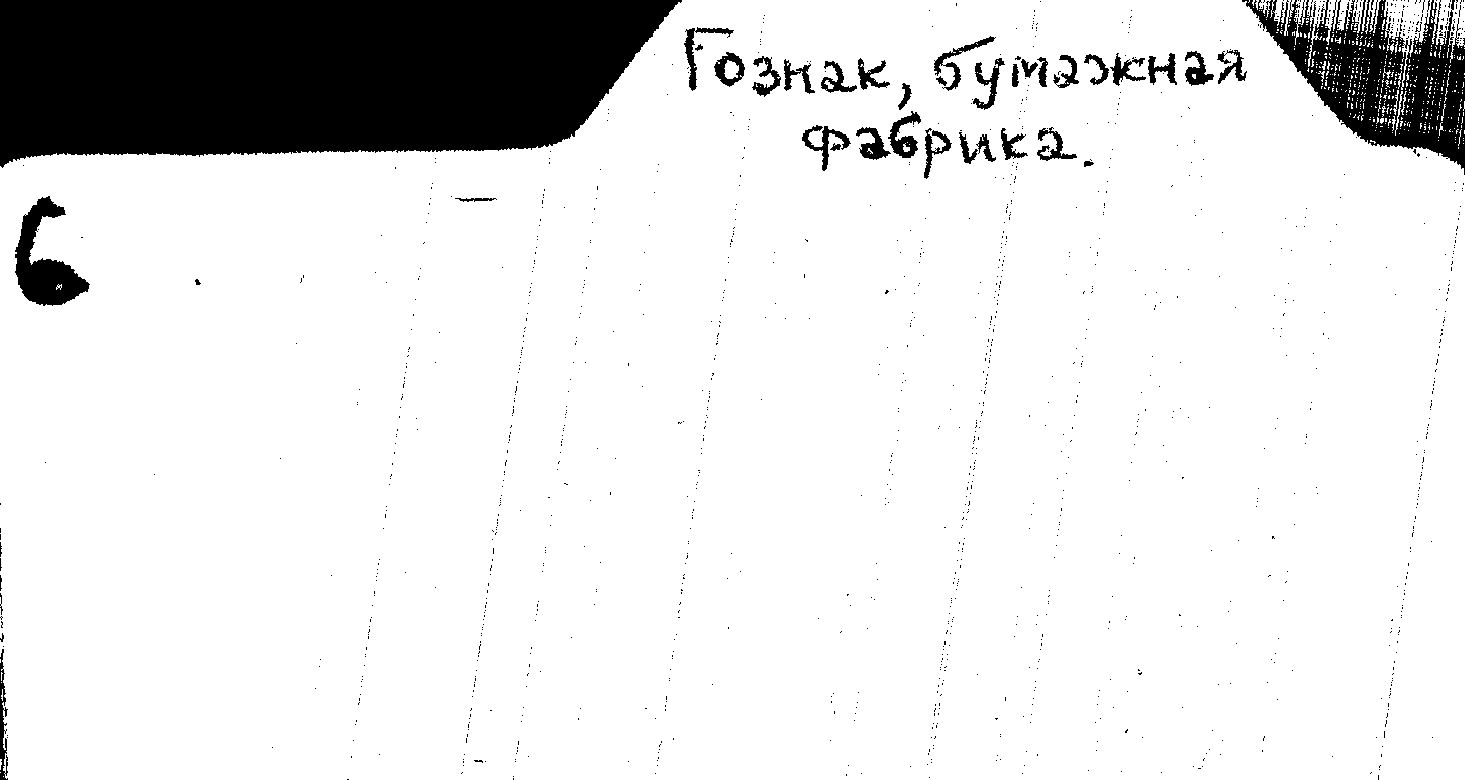 Гознак, бумажная
фабрика.
6